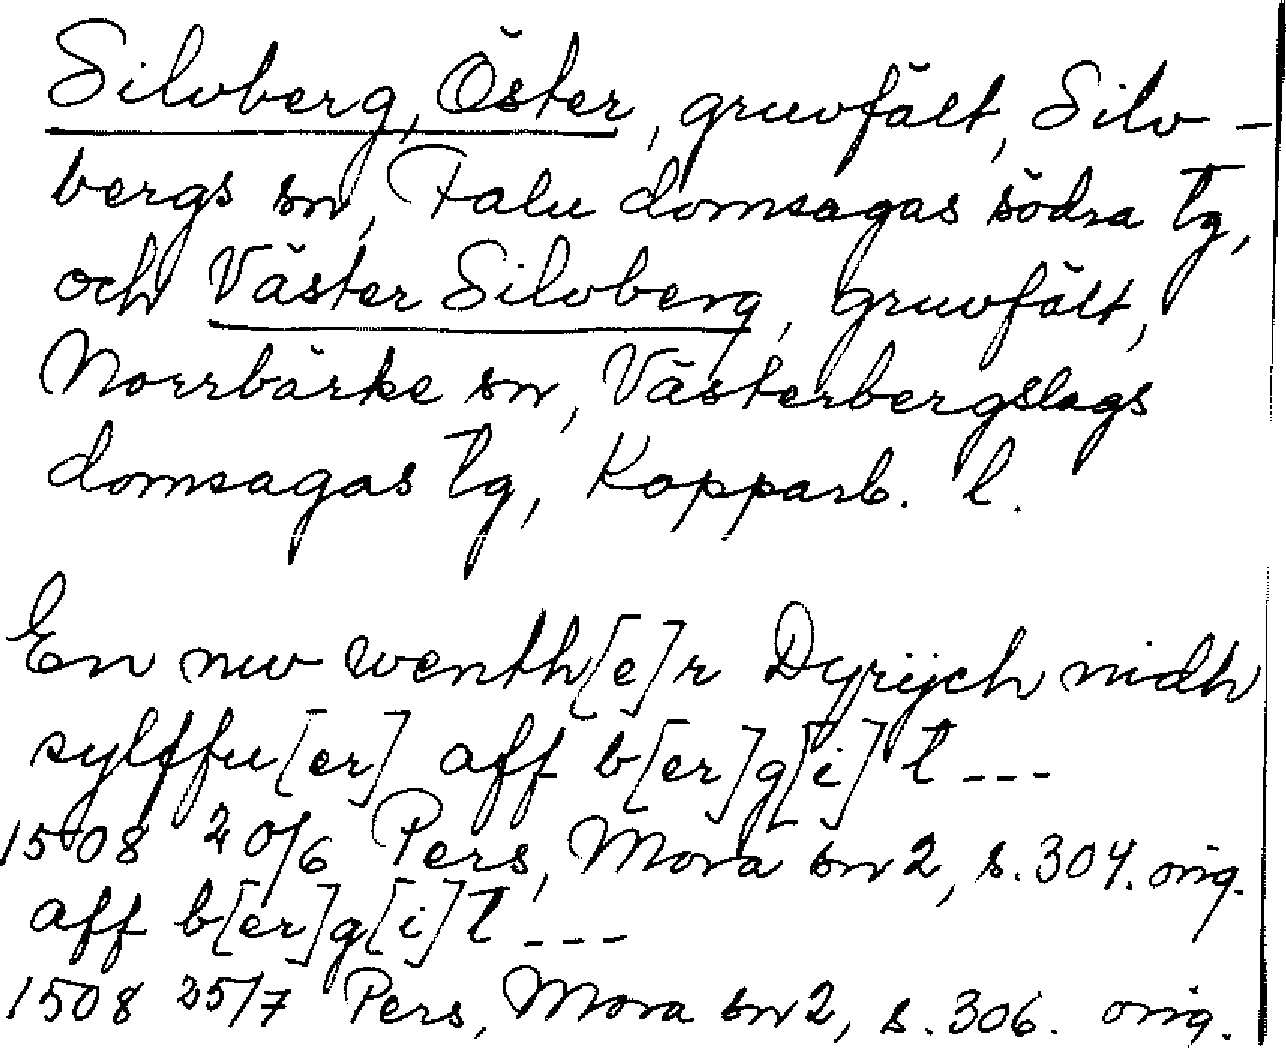 Silvberg, Öster, gruvfält, Silv-
bergs sn, Falu domsagas södra tg,
och Väster Silvberg, gruvfält,
Norrbärke sn, Västerbergslags
domsagas tg, Kopparb. l.
En nw wenth[e]r Dyrijch nidh
sylffu[er] aff b[er]g[i]t ---
1508 20/6 Pers, Mora sn 2, s. 304. orig.
aff b[er]g[i]t ---
1508 25/7 Pers, Mora sn 2, s. 306. orig.